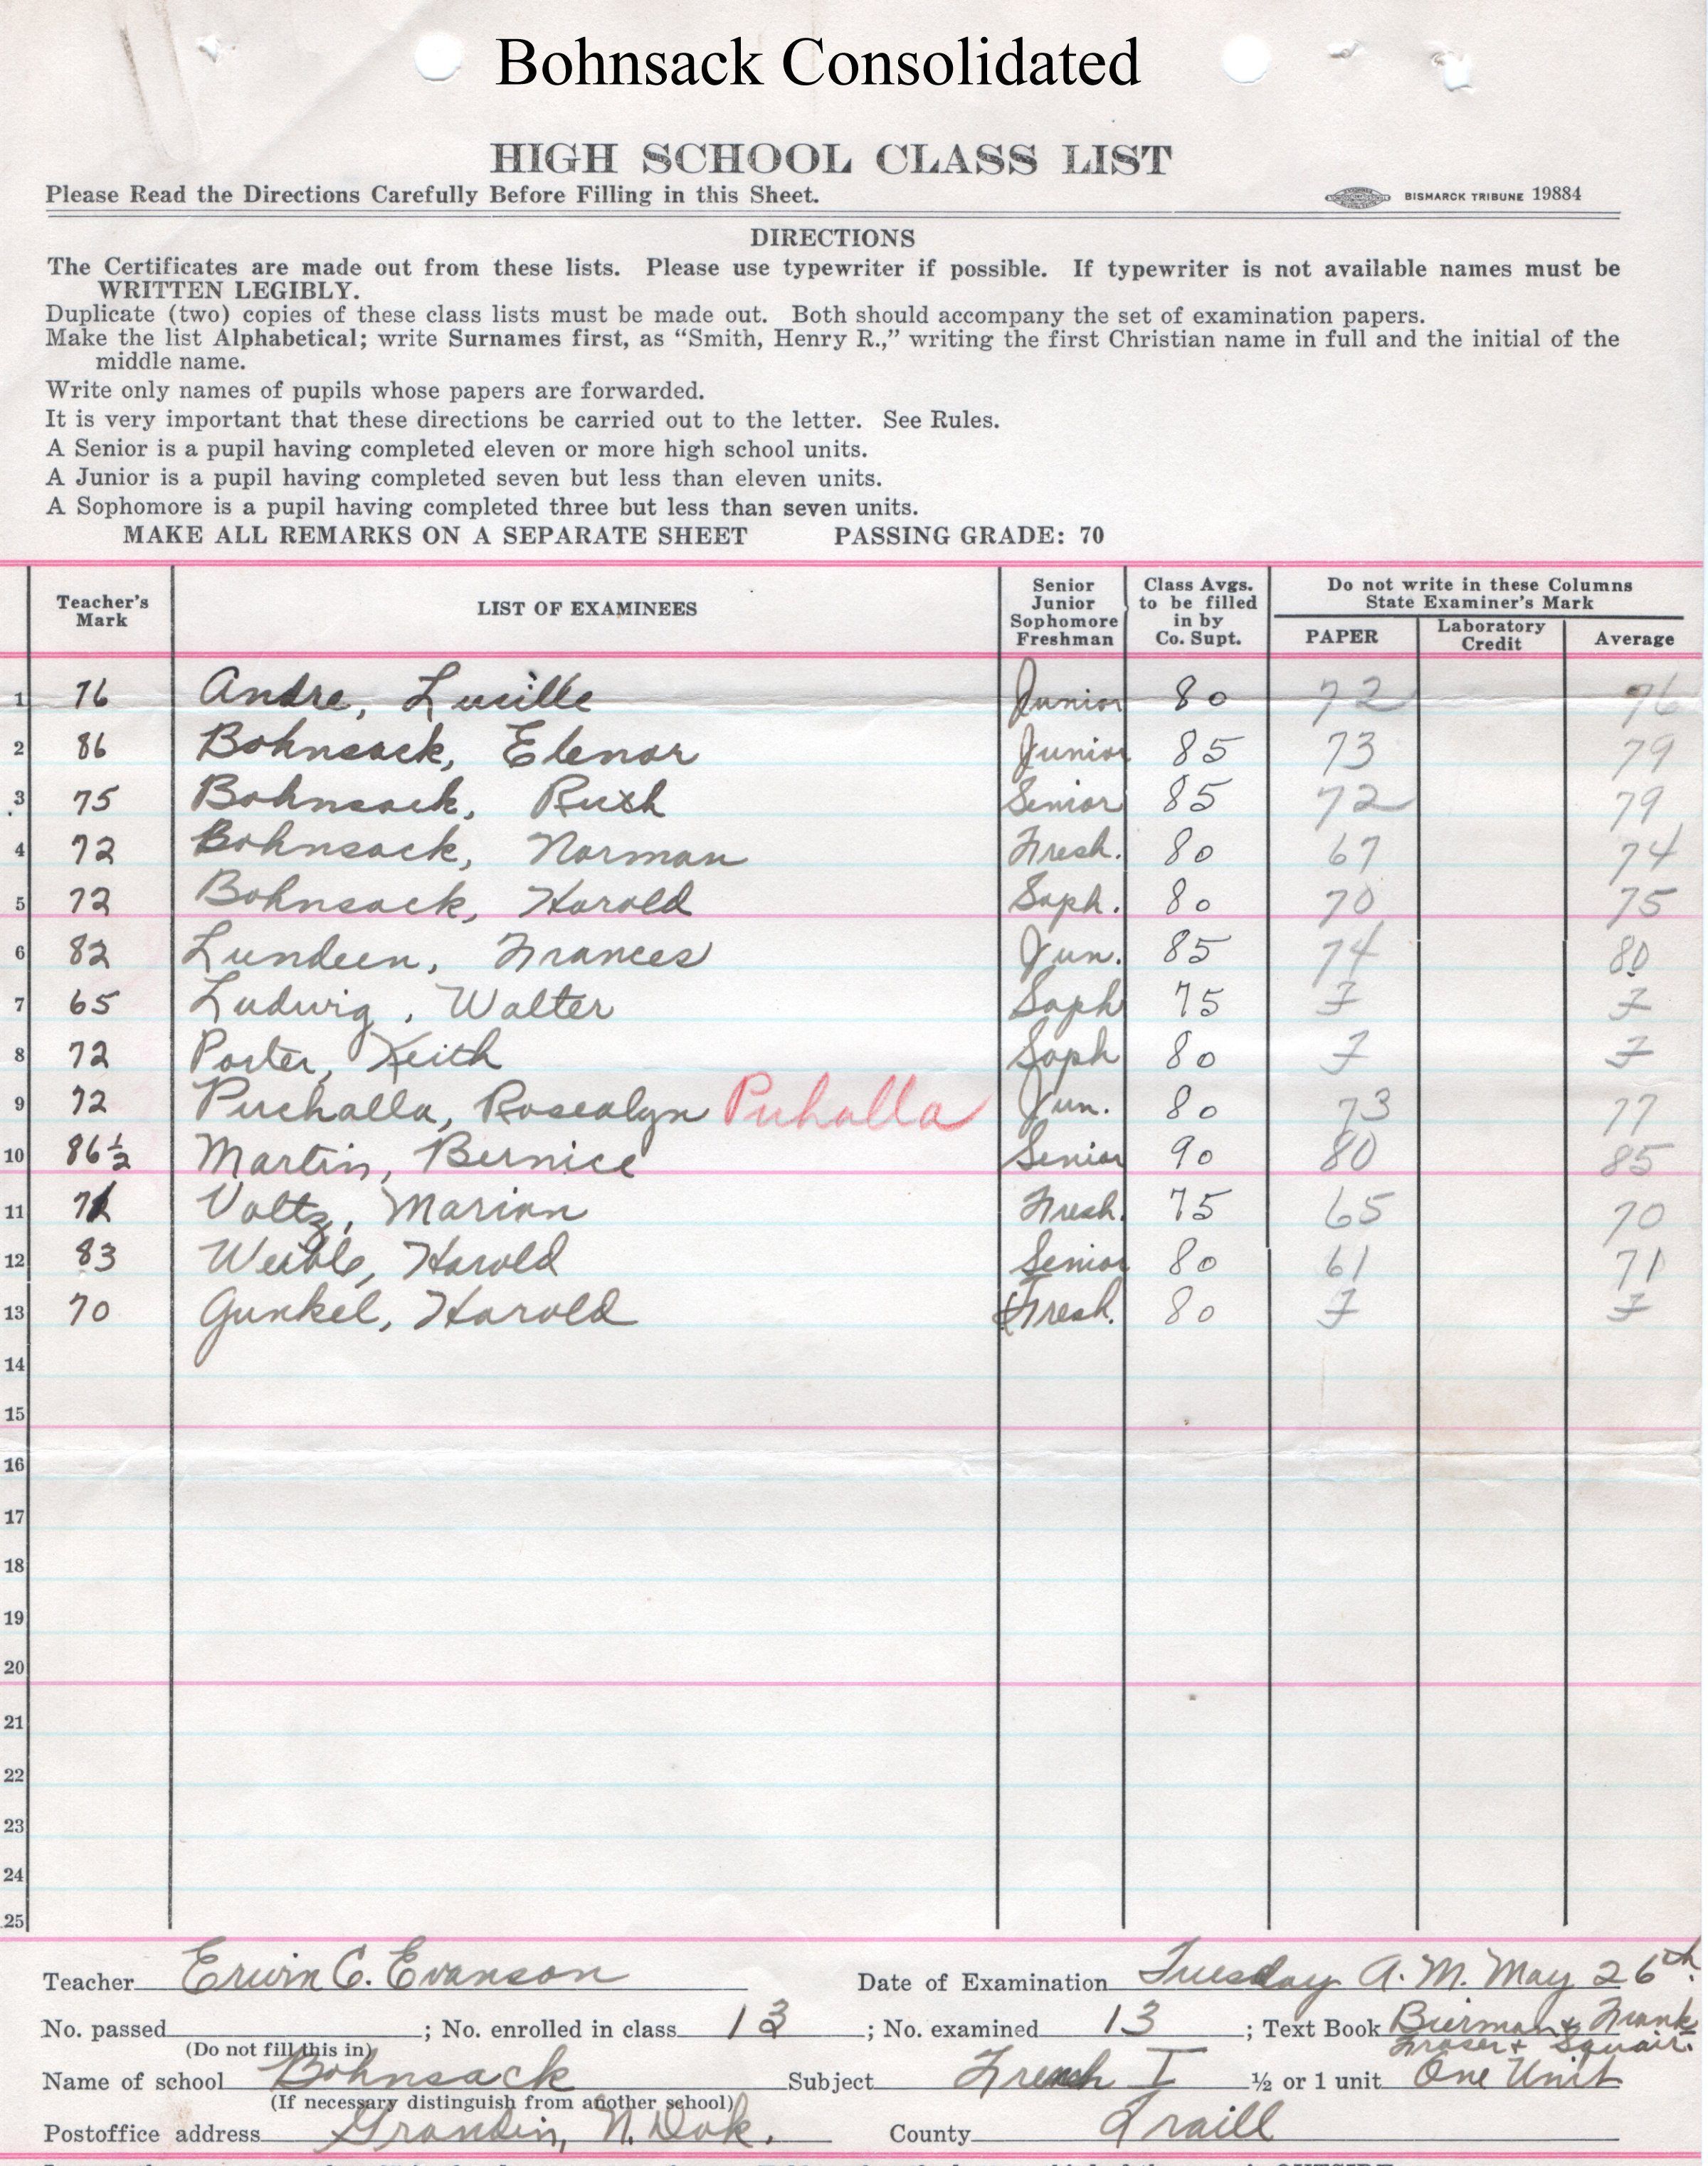 Bohnsack Consolidated
HIGH SCHOOL CLASS LIST
Please Read the Directions Carefully Before Filling in this Sheet. BISMARCK TRIBUNE 19884
DIRECTIONS
The Certificates are made out from these lists. Please use typewriter if possible. If typewriter is not available names must be
WRITTEN LEGIBLY.
Duplicate (two) copies of these class lists must be made out. Both should accompany the set of examination papers.
Make the list Alphabetical; write Surnames first, as “Smith, Henry R.,” writing the first Christian name in full and the initial of the
middle name.
Write only names of pupils whose papers are forwarded.
It is very important that these directions be carried out to the letter. See Rules.
A Senior is a pupil having completed eleven or more high school units.
A Junior is a pupil having completed seven but less than eleven units.
A Sophomore is a pupil having completed three but less than seven units.
MAKE ALL REMARKS ON A SEPARATE SHEET PASSING GRADE: 70
Teacher's Mark LIST OF EXAMINEES Senior Junior Sophomore Freshman Class Avgs. to be filled in by Co. Supt. Do not write in these Columns State Examiner's Mark
PAPER Laboratory Credit Average
1 76 Andre, Lucille Junior 80 72 76
2 86 Bohnsack, Elenor Junior 85 73 79
3 75 Bohnsack, Ruth Senior 85 72 79
4 72 Bohnsack, Norman Fresh. 80 67 74
5 72 Bohnsack, Harold Soph. 80 70 75
6 82 Lundeen, Frances Jun. 85 74 80
7 65 Ludwig, Walter Soph 75 F F
8 72 Porter, Keith Soph 80 F F
9 72 Puchalla, Rosealyn Puhalla Jun. 80 73 77
10 86½ Martin, Bernice Senior 90 80 85
11 Voltz, Marion Fresh. 75 65 70
12 83 Weible, Harold Senior 80 61 71
13 70 Gunkel, Harold Fresh. 80 F F
14
15
16
17
18
19
20
21
22
23
24
25
Teacher Erwin C. Evanson Date of Examination Tuesday A.M. May 26th.
No. passed ; No. enrolled in class 13 ; No. examined 13 ; Text Book Bierman & Frank
(Do not fill this in) Fraser + Squair.
Name of school Bohnsack Subject French I ½ or 1 unit One Unit
(If necessary distinguish from another school)
Postoffice address Grandin, N. Dak. County Traill